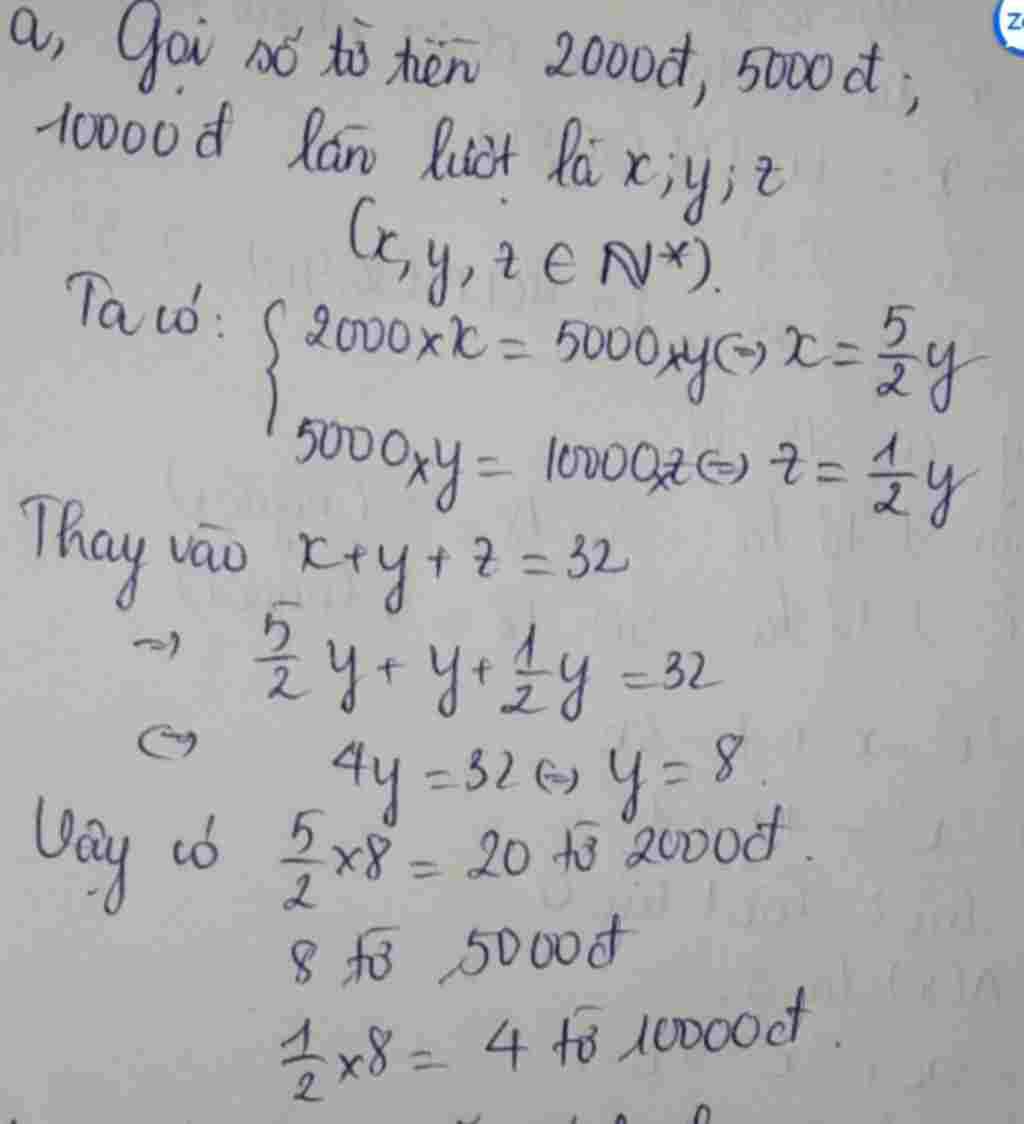 a, Gọi số tờ tiền 2000đ, 5000đ;
10000đ lần lượt là x; y; z
(x, y, z ∈ N*).
Ta có: { 2000 × x = 5000 × y ⇔ x = 5/2 y
5000 × y = 10000 × z ⇔ z = 1/2 y
Thay vào x + y + z = 32
⇒ 5/2 y + y + 1/2 y = 32
⇔ 4y = 32 ⇔ y = 8.
Vậy có 5/2 × 8 = 20 tờ 2000đ.
8 tờ 5000đ
1/2 × 8 = 4 tờ 10000đ.